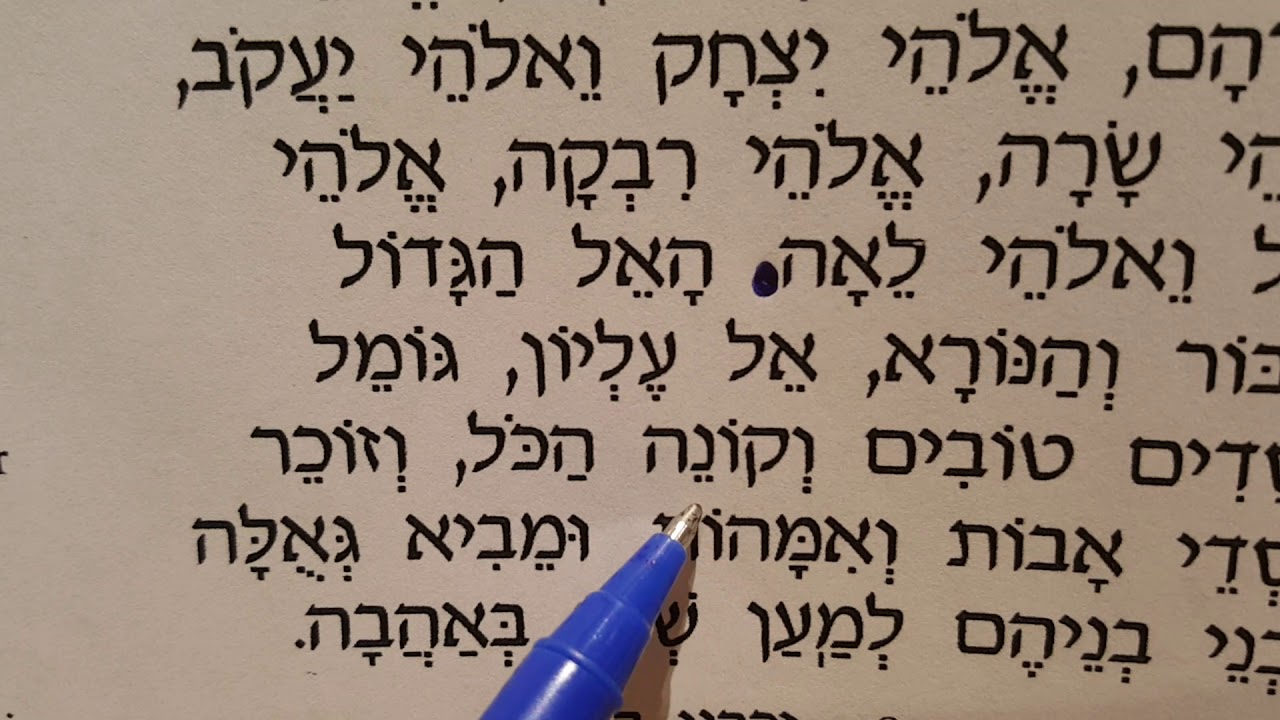 אֱלֹהֵי יִצְחָק וֵאלֹהֵי יַעֲקֹב,
שָׂרָה, אֱלֹהֵי רִבְקָה, אֱלֹהֵי
וֵאלֹהֵי לֵאָה. הָאֵל הַגָּדוֹל
וְהַנּוֹרָא, אֵל עֶלְיוֹן, גּוֹמֵל
טוֹבִים וְקוֹנֵה הַכֹּל, וְזוֹכֵר
אָבוֹת וּמֵבִיא גְּאֻלָּה
בְנֵיהֶם לְמַֽעַן בְּאַהֲבָה.